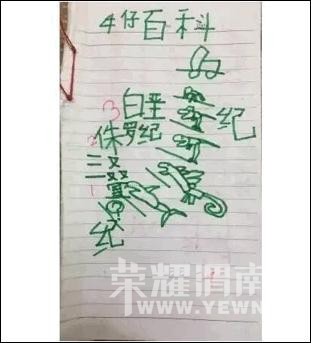 4仔百科
3 白垩纪
2 侏罗纪
1 三叠纪
荣耀渭南
WWW.YEWN